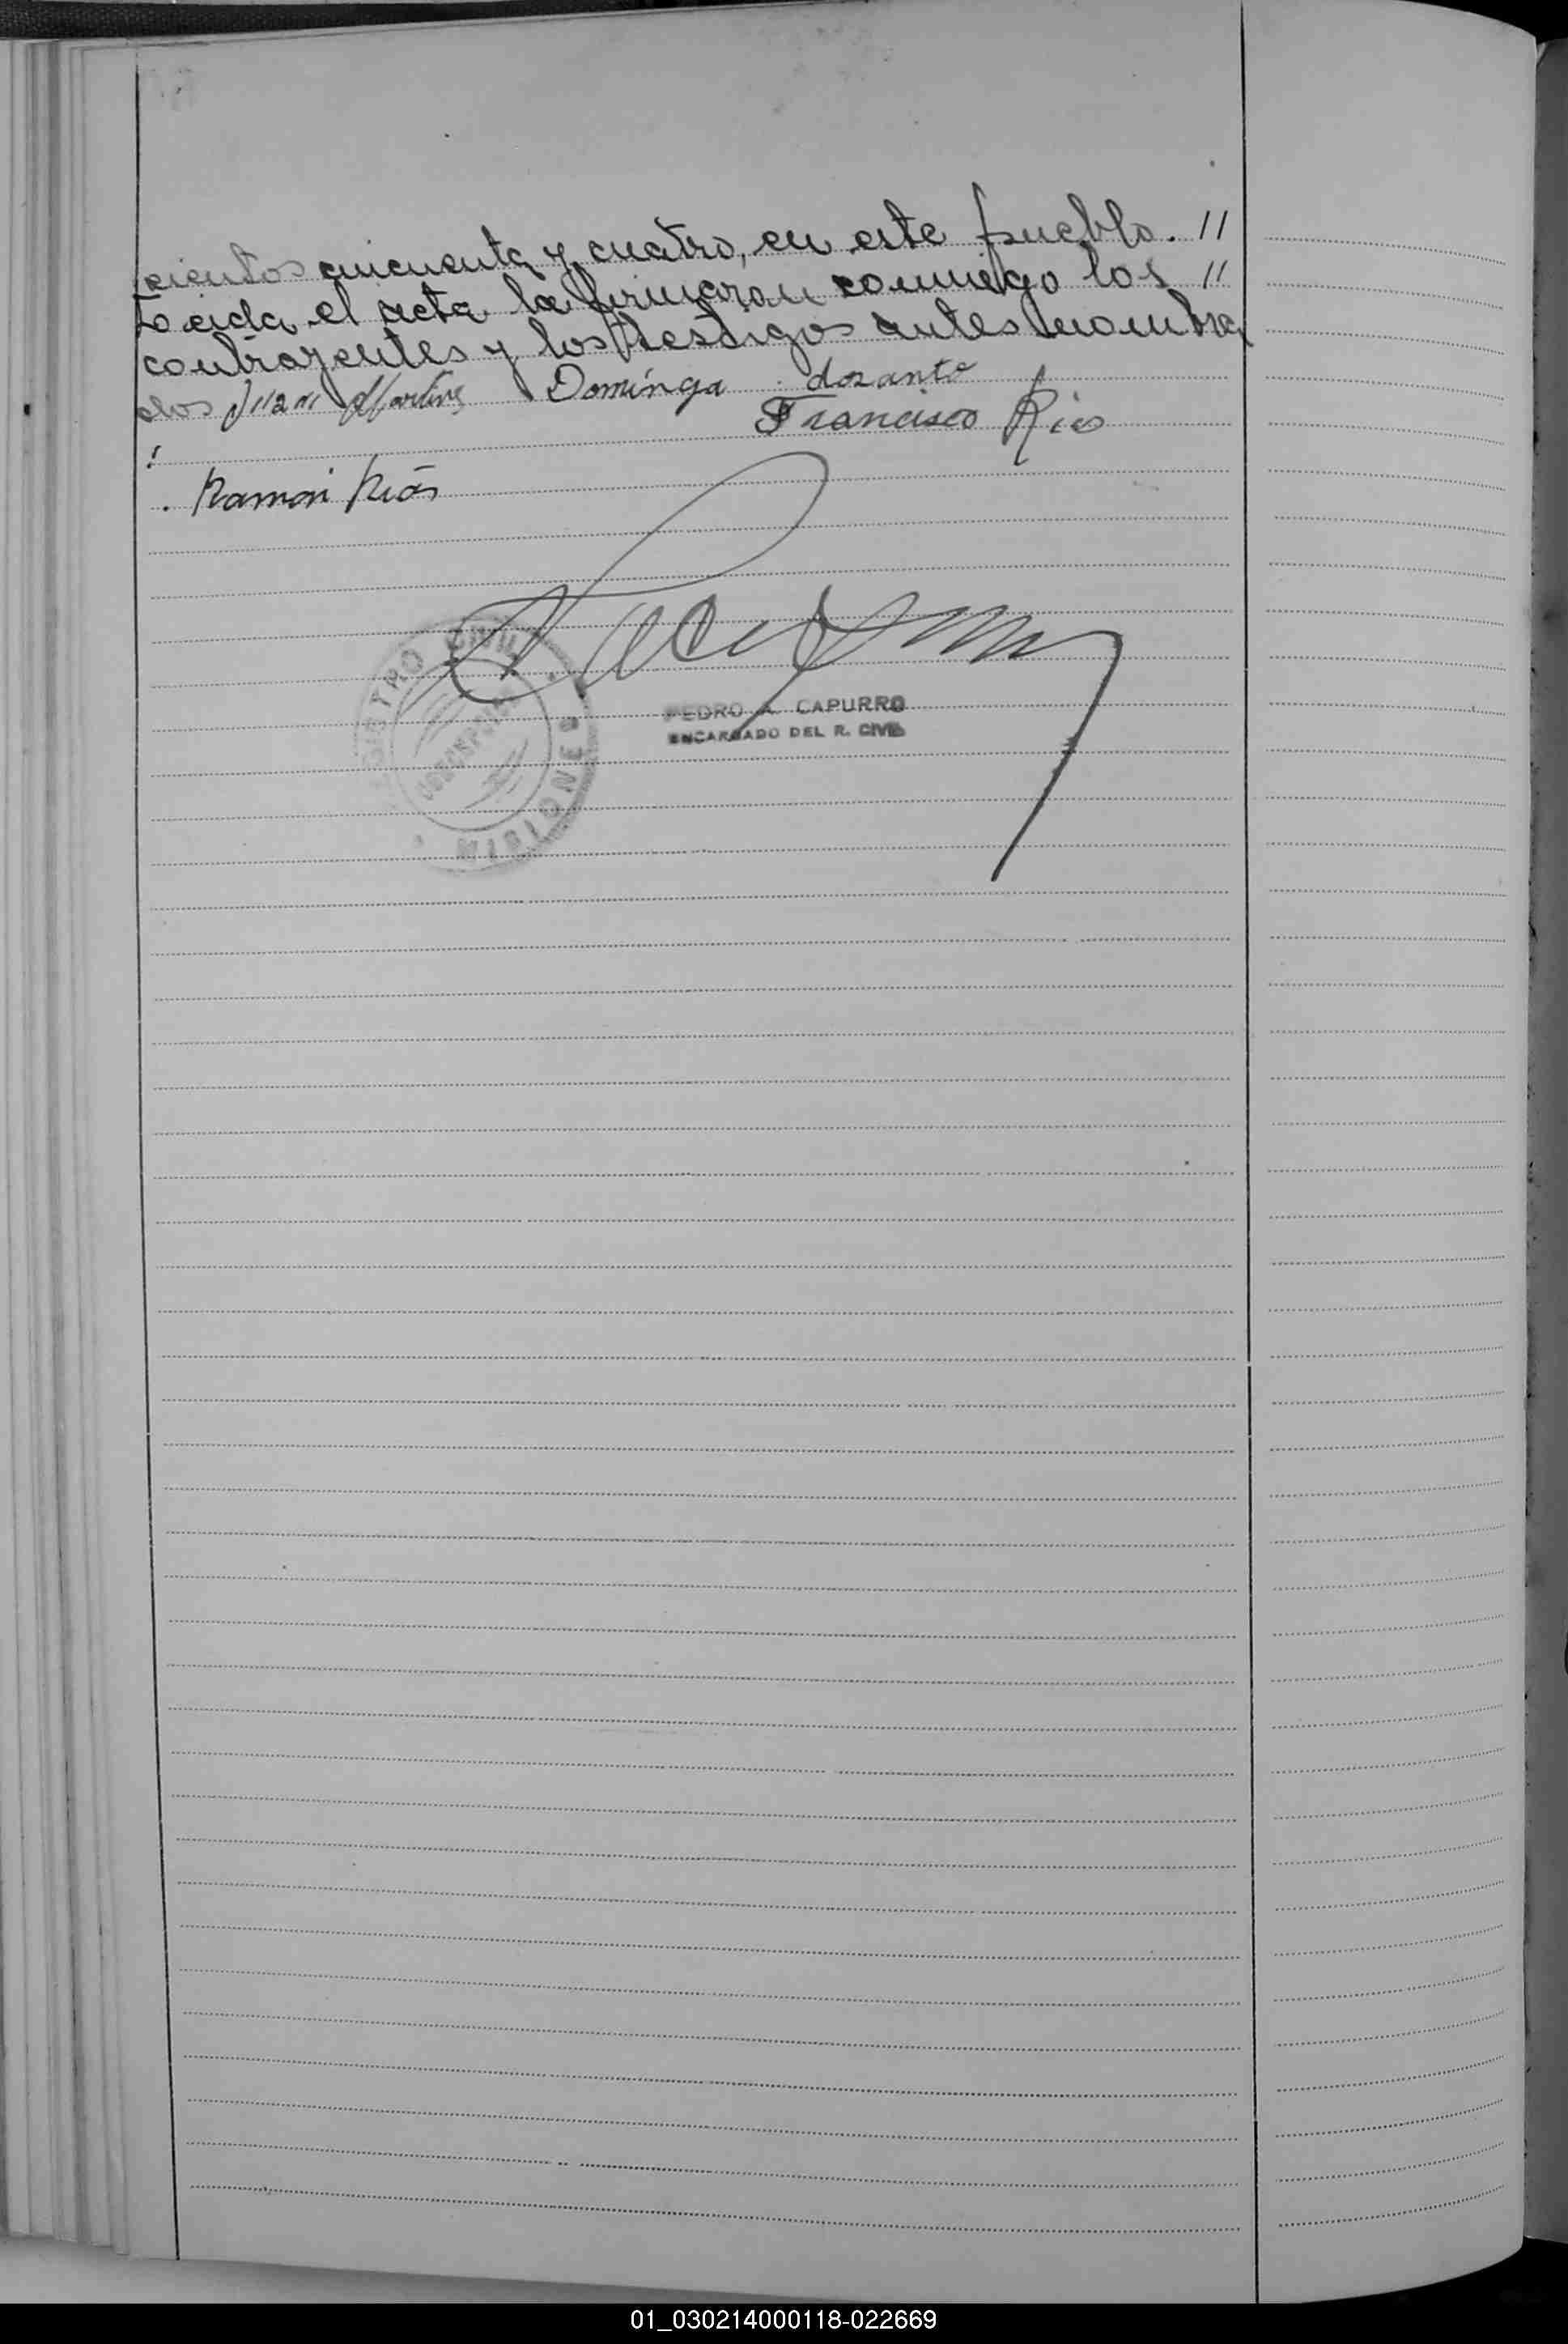 cientos cincuenta y cuatro, en este pueblo. //
Leida el acta la firmaron conmigo los //
contrayentes y los testigos antes nombra
dos Juan Martinez Dominga dozante
Francisco Rios
Ramon Rios
REGISTRO CIVIL
MISIONES
PEDRO A. CAPURRO
ENCARGADO DEL R. CIVIL
01_030214000118-022669